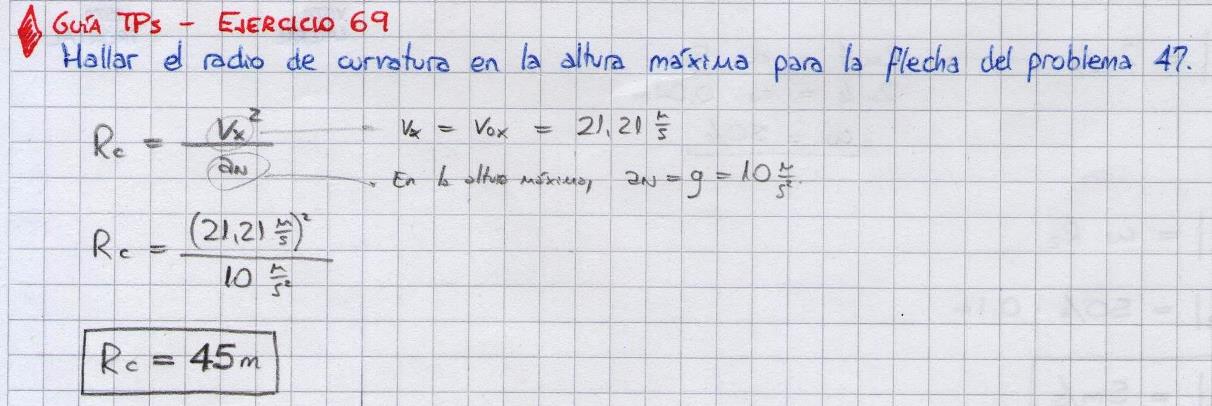 GUÍA TPs - EJERCICIO 69
Hallar el radio de curvatura en la altura máxima para la flecha del problema 47.
Rc = Vx² / aN
Vx = V0x = 21,21 m/s
. En la altura máxima, aN = g = 10 m/s².
Rc = (21,21 m/s)² / 10 m/s²
Rc = 45m